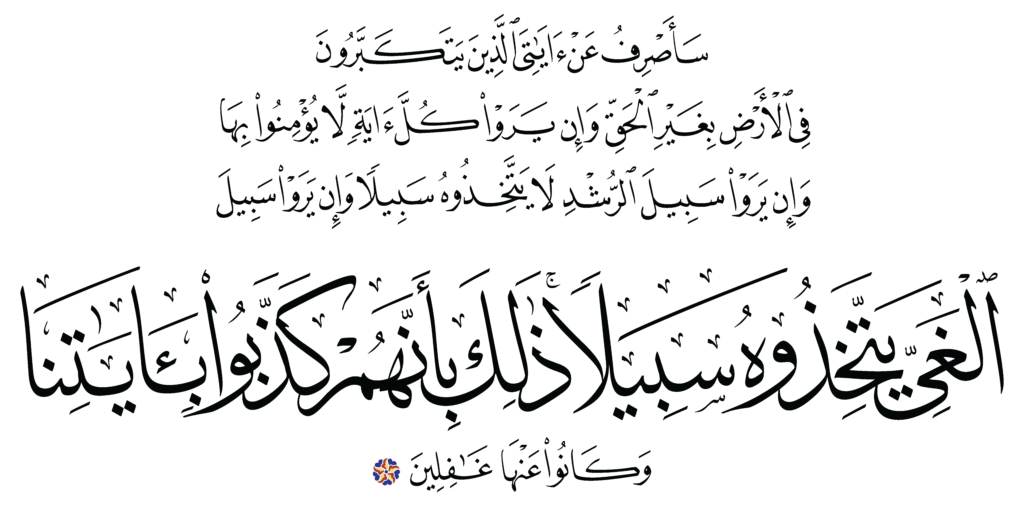 سَأَصْرِفُ عَنْ ءَايَٰتِىَ ٱلَّذِينَ يَتَكَبَّرُونَ
فِى ٱلْأَرْضِ بِغَيْرِ ٱلْحَقِّ وَإِن يَرَوْا۟ كُلَّ ءَايَةٍ لَّا يُؤْمِنُوا۟ بِهَا
وَإِن يَرَوْا۟ سَبِيلَ ٱلرُّشْدِ لَا يَتَّخِذُوهُ سَبِيلًا وَإِن يَرَوْا۟ سَبِيلَ
ٱلْغَىِّ يَتَّخِذُوهُ سَبِيلًا ۚ ذَٰلِكَ بِأَنَّهُمْ كَذَّبُوا۟ بِـَٔايَٰتِنَا
وَكَانُوا۟ عَنْهَا غَٰفِلِينَ